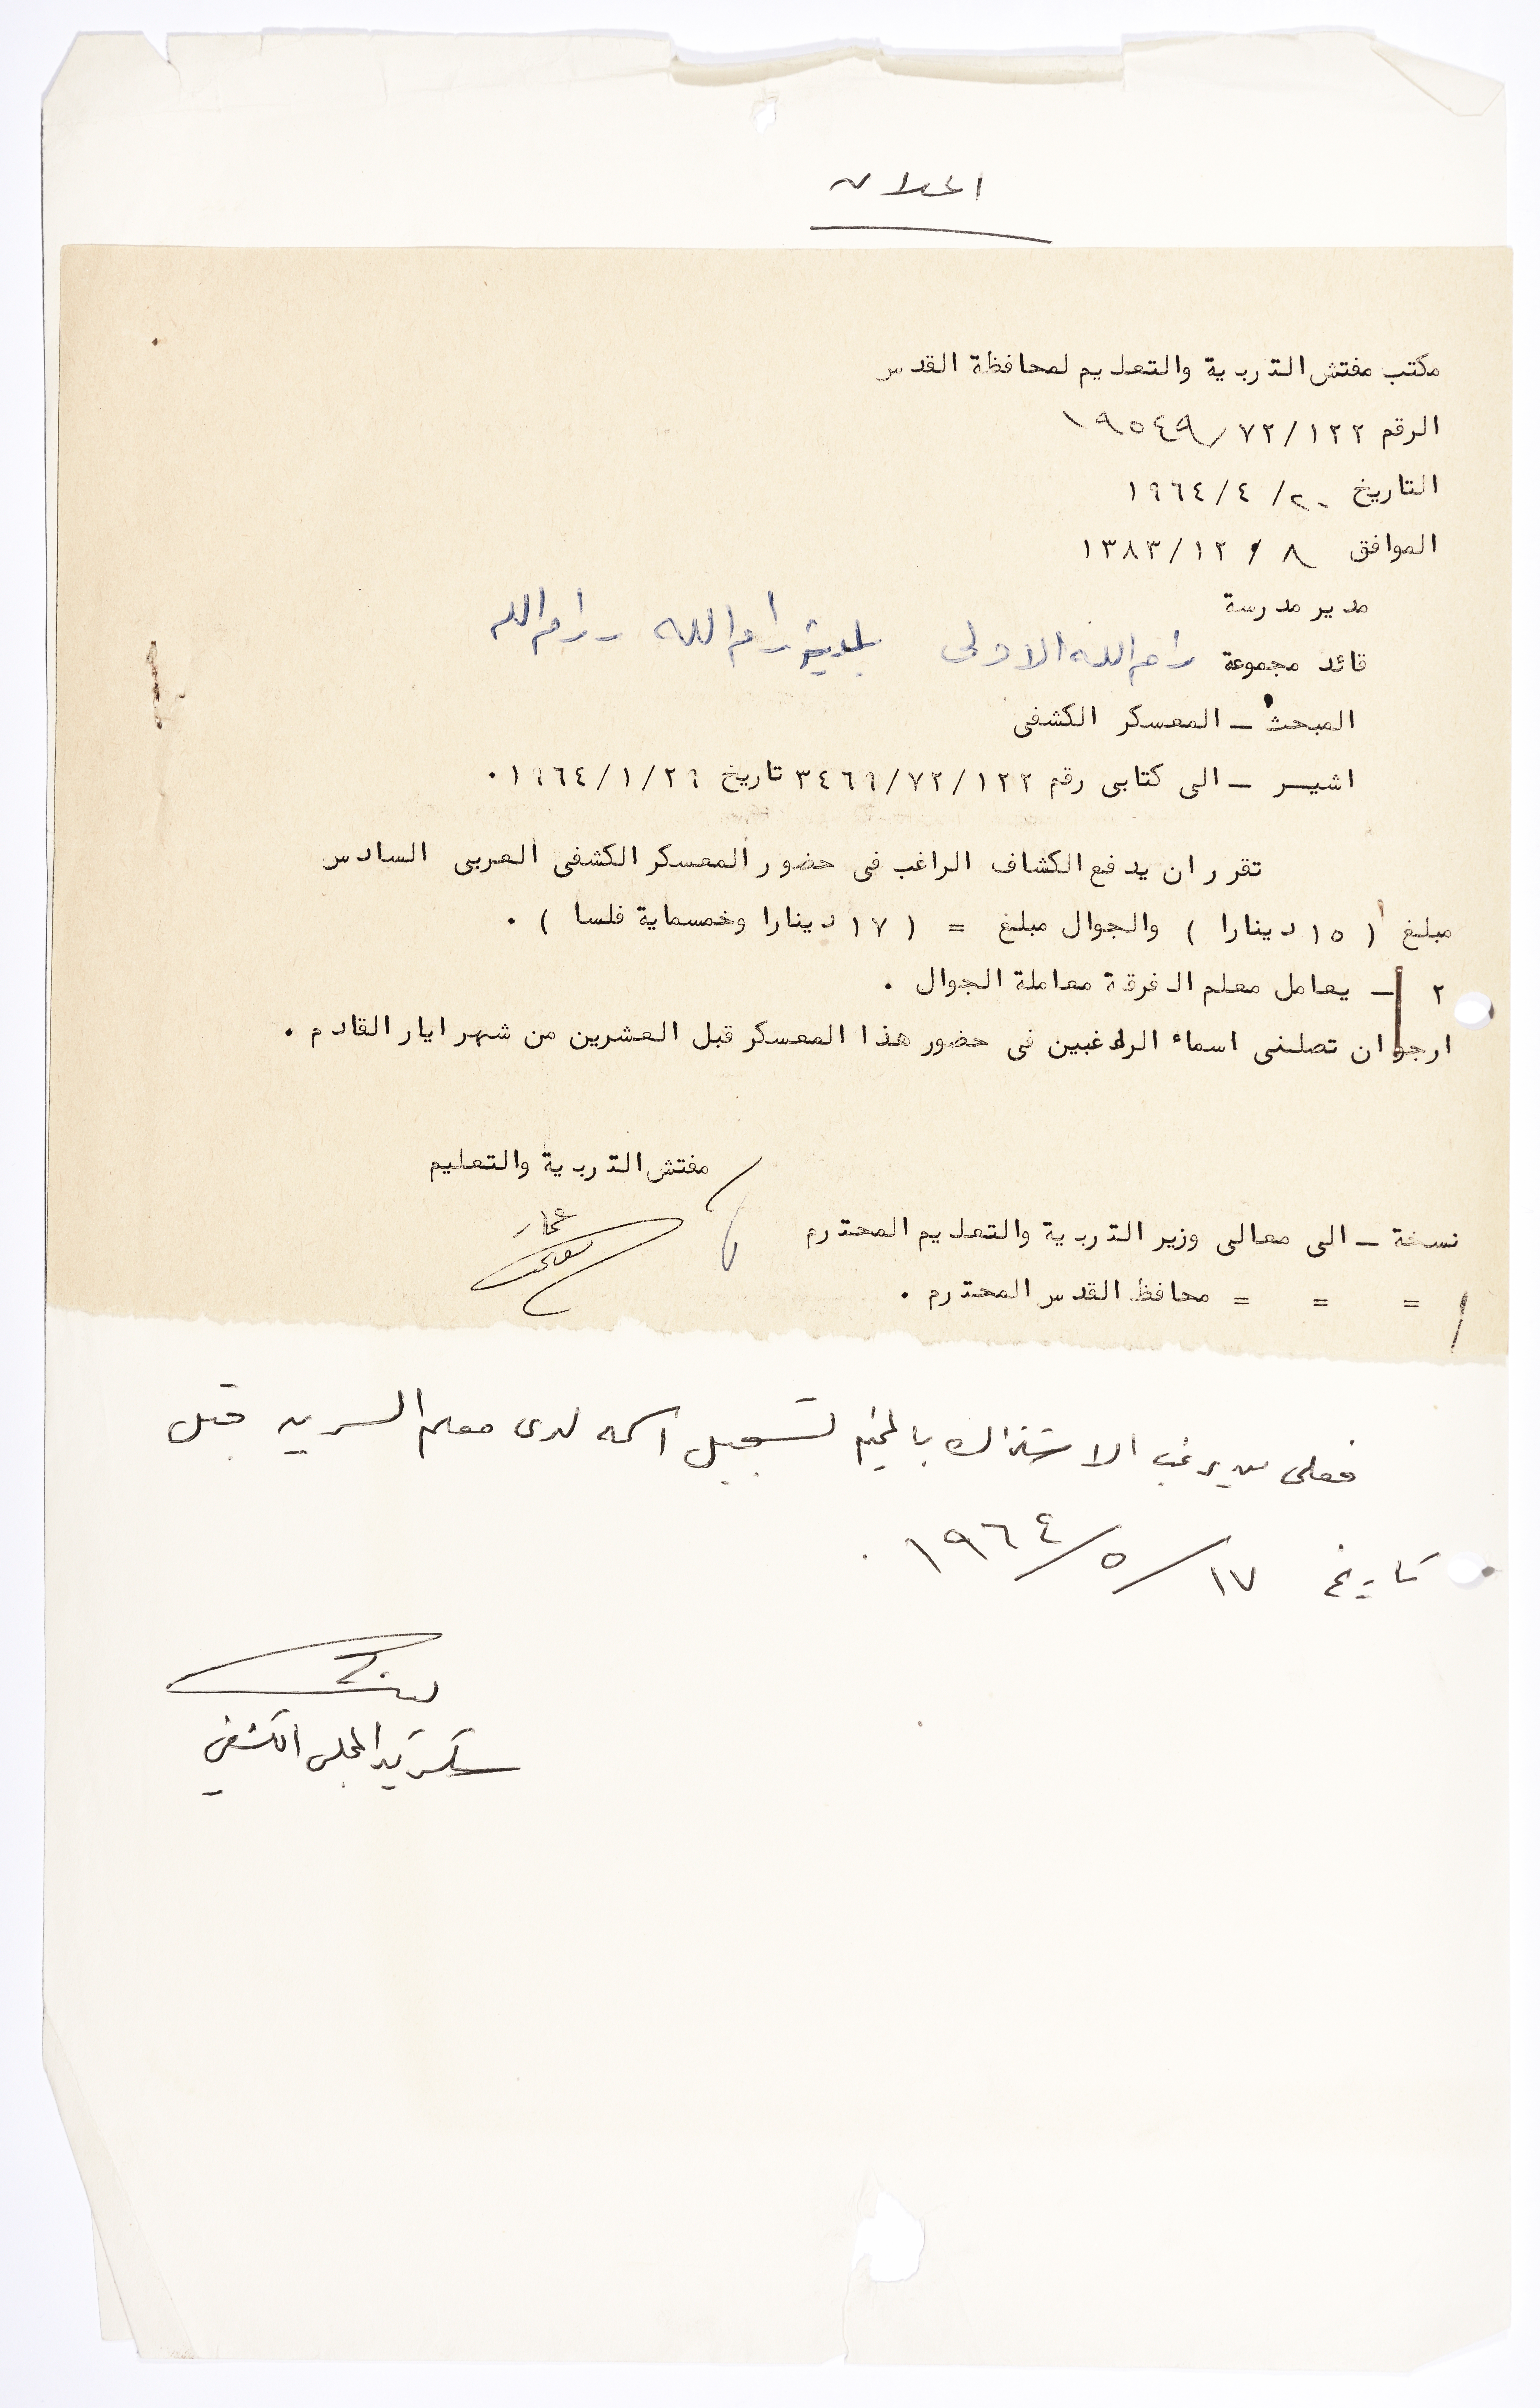 اعلان
مكتب مفتش التربية والتعليم لمحافظة القدس
الرقم ١٩٥٤٩/٧٢/١٢٢
التاريخ ٢٠/ ٤/ ١٩٦٤
الموافق ٨ / ١٢/ ١٣٨٣
مدير مدرسة
قائد مجموعة رام الله الاولى بلدية رام الله - رام الله
المبحث - المعسكر الكشفي
اشيــر - الى كتابي رقم ٣٤٦٩/٧٢/١٢٢ تاريخ ١٩٦٤/١/٢٩ .
تقرر ان يدفع الكشاف الراغب في حضور المعسكر الكشفي العربي السادس
مبلغ ( ١٥ دينارا ) والجوال مبلغ = ( ١٧ دينارا وخمسماية فلسا ) .
٢ - يعامل معلم الفرقة معاملة الجوال .
ارجو ان تصلني اسماء الراغبين في حضور هذا المعسكر قبل العشرين من شهر ايار القادم .
مفتش التربية والتعليم
نسخة - الى معالي وزير التربية والتعليم المحترم
= = = محافظ القدس المحترم .
فعلى من يرغب الاشتراك بالمخيم تسجيل اسمه لدى معلم السرية قبل
تاريخ ١٧/ ٥/ ١٩٦٤ .
سكرتير المجلس الكشفي